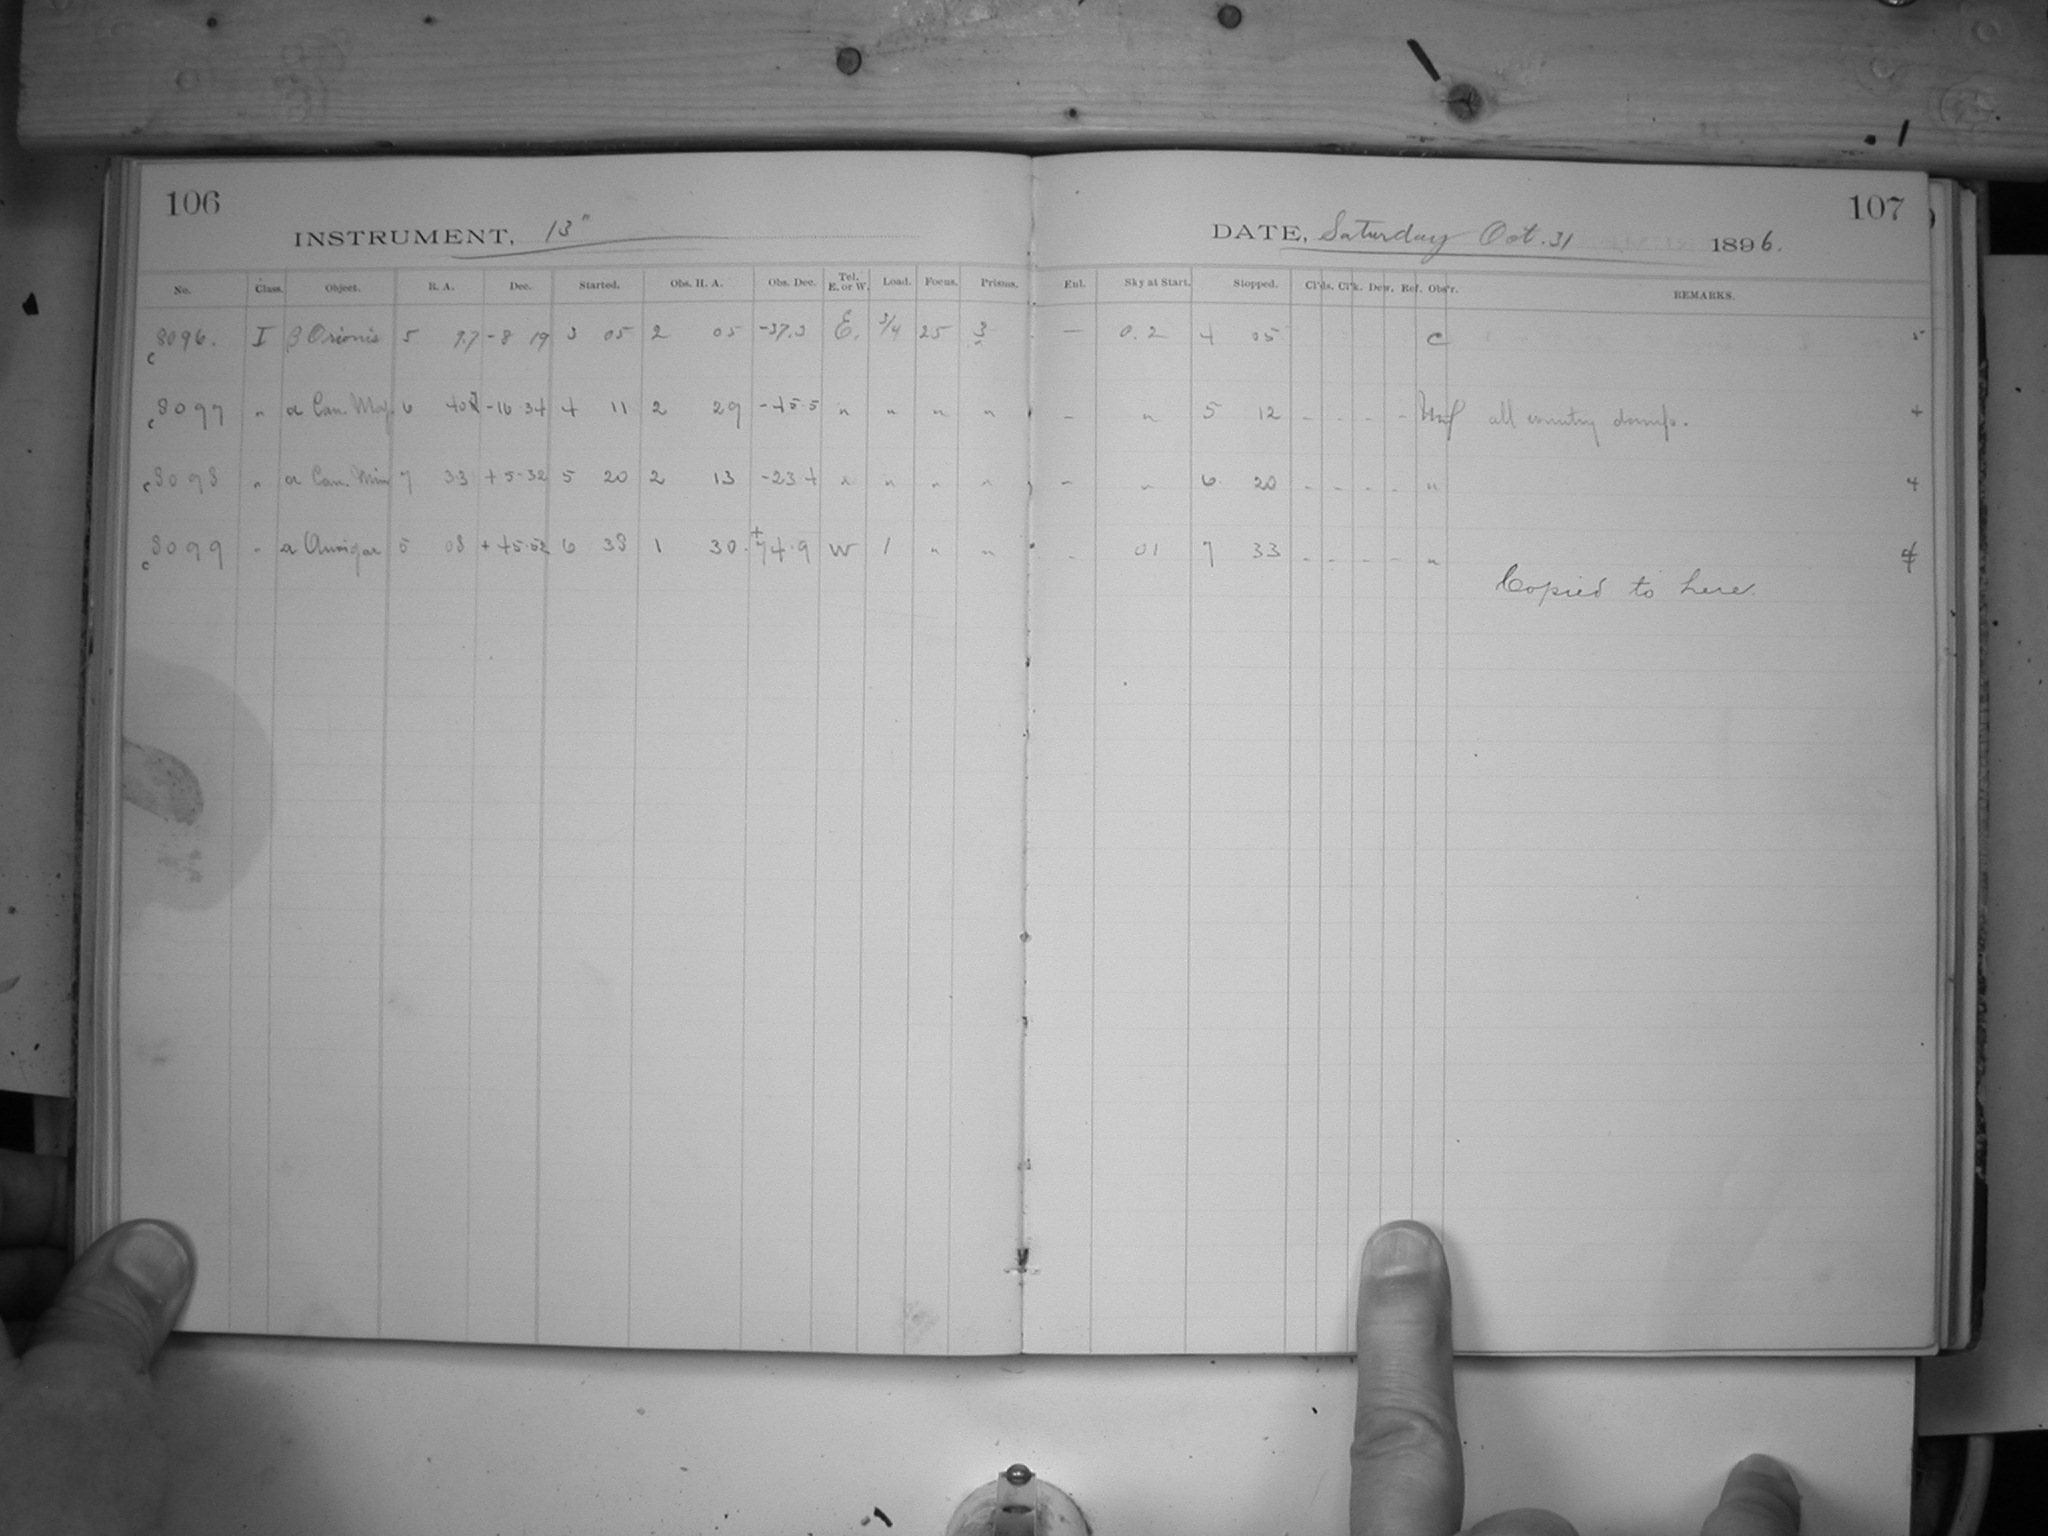 106
INSTRUMENT, 13"
No. Class. Object. R. A. Dec. Started. Obs. H. A. Obs. Dec. Tel. E. or W. Load. Focus. Prisms.
c 8096. I β Orionis 5 9.7 -8 19 3 05 2 05 -37.3 E. 3/4 25 3
c 8097 " α Can. Maj. 6 40 -16 34 4 11 2 29 -45.5 " " " "
c 8098 " α Can. Min 7 33 +5.32 5 20 2 13 -23 4 " " " "
c 8099 " α Aurigae 5 08 +45.52 6 38 1 30. +74.9 W 1 " "
107
DATE, Saturday Oct. 31 1896.
Enl. Sky at Start. Stopped. Cl'ds. Cl'k. Dew. Ref. Obs'r. REMARKS.
— 0.2 4 05 C 5
– " 5 12 - - - - all country damp. 4
– " 6 20 - - - - " 4
- 01 7 33 - - - - " 4
Copied to here.